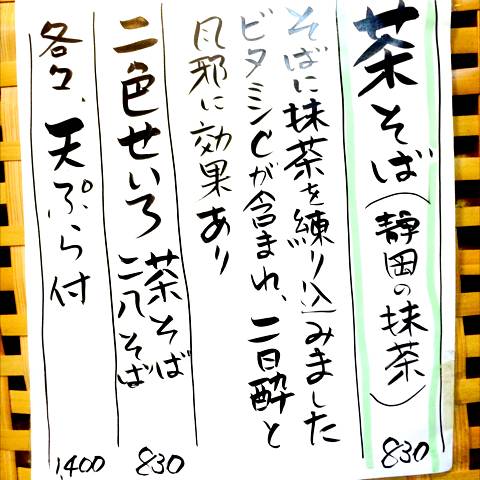 茶そば(静岡の抹茶) 830
そばに抹茶を練り込みました
ビタミンCが含まれ、二日酔と
風邪に効果あり
二色せいろ 茶そば 二八そば 830
各々、天ぷら付 1,400